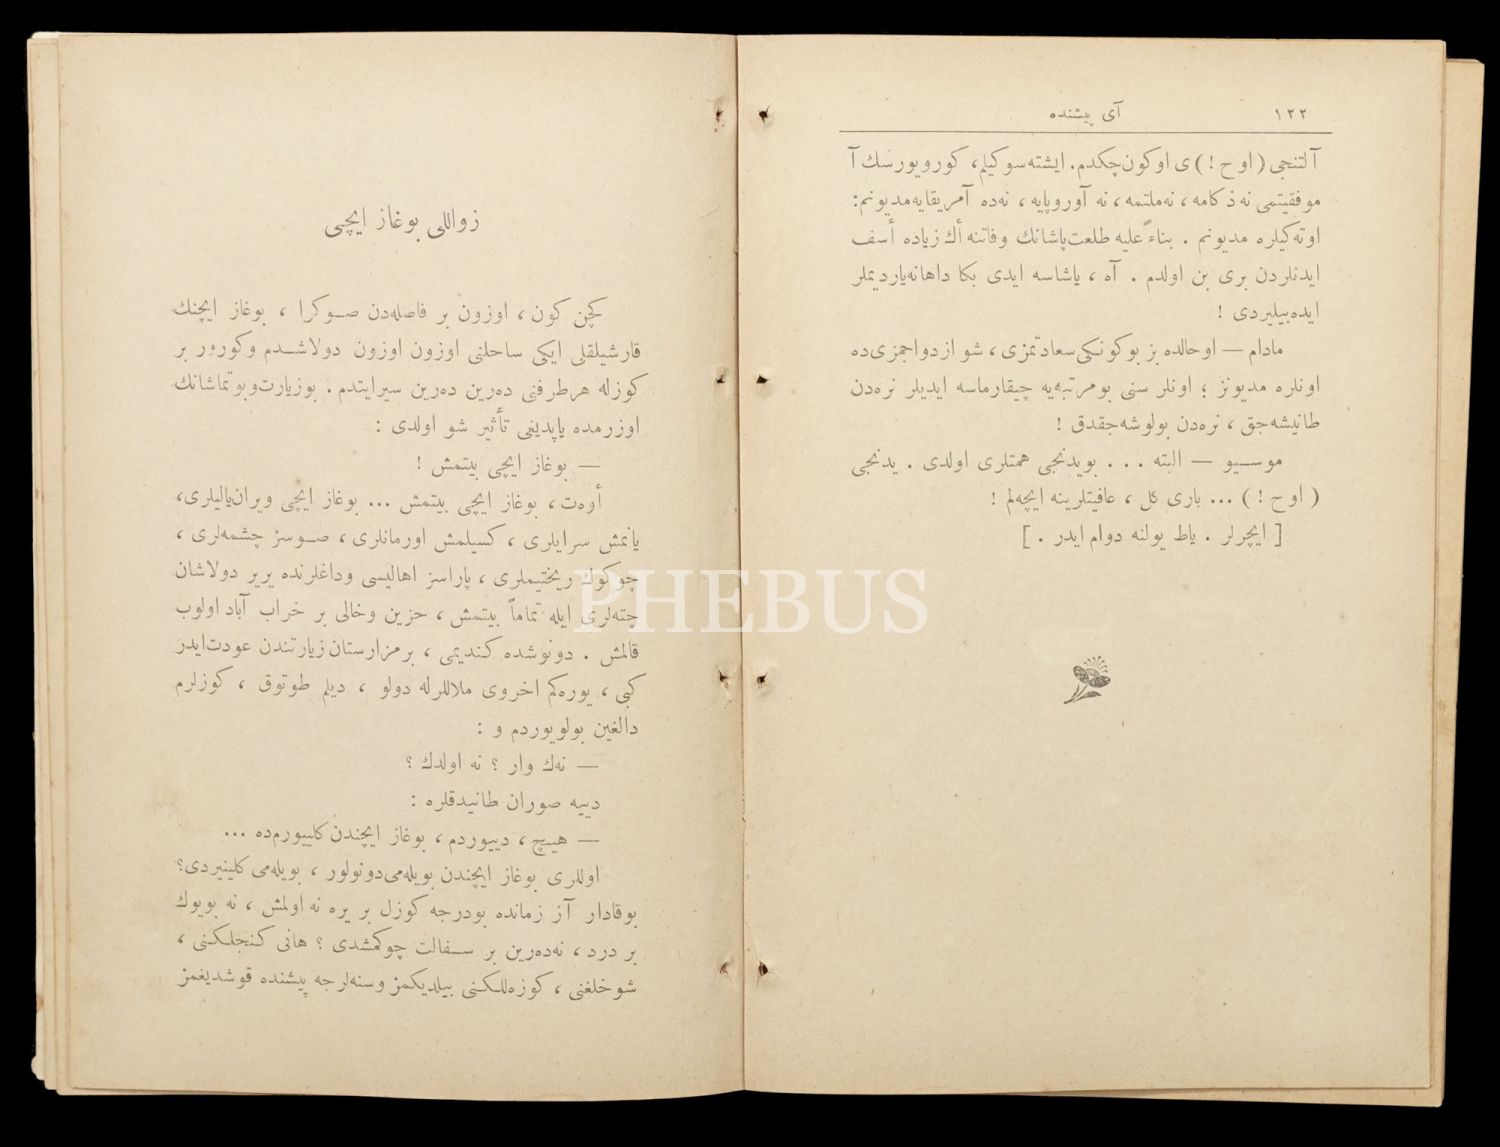 ١٢٢ آی پیشنده
آلتنجی (اوح!) ی اوكون چكدم. ایشته سوكیلم، كورویورسك آ
موفقیتمی نه ذكامه، نه ملتمه، نه آوروپایه، نه ده آمریقایه مدیونم:
اوته كیلره مدیونم . بناءً علیه طلعت پاشانك وفاتنه أك زیاده أسف
ایدنلردن بری بن اولدم . آه ، یاشاسه ایدی بكا داها نه یاردیملر
ایده بیلیردی !
مادام — اوحالده بز بوكونكی سعادتمزی، شو ازدواجمزی ده
اونلره مدیونز ؛ اونلر سنی بومرتبه یه چیقارماسه ایدیلر نره دن
طانیشه جق ، نره دن بولوشه جقدق !
موسیو — البته ... بویدنجی همتلری اولدی . یدنجی
( اوح ! ) ... باری كل ، عافیتلرینه ایچه لم !
[ ایچرلر . یاط یولنه دوام ایدر . ]
زواللی بوغاز ایچی
كچن كون ، اوزون بر فاصله دن صوكرا ، بوغاز ایچنك
قارشیلقلی ایكی ساحلنی اوزون اوزون دولاشدم و كورور بر
كوزله هر طرفنی ده رین ده رین سیر ایتدم . بوزیارت و بوتماشانك
اوزرمده یاپدیغی تأثیر شو اولدی :
— بوغاز ایچی بیتمش !
أوه ت ، بوغاز ایچی بیتمش ... بوغاز ایچی ویران یالیلری،
یانمش سرایلری ، كسیلمش اورمانلری ، صوسز چشمه لری ،
چوكوك ریختیملری ، پاراسز اهالیسی و داغلرنده یریر دولاشان
چته لری ایله تماماً بیتمش ، حزین و خالی بر خراب آباد اولوب
قالمش . دونوشده كندیمی ، بر مزارستان زیارتندن عودت ایدر
كبی ، یوره كم اخروی ملاللرله دولو ، دیلم طوتوق ، كوزلرم
دالغین بولویوردم و :
— نه ك وار ؟ نه اولدك ؟
دییه صوران طانیدقلره :
— هیچ ، دییوردم ، بوغاز ایچندن كلییورم ده ...
اوللری بوغاز ایچندن بویله می دونولور ، بویله می كلینیردی؟
بوقادار آز زمانده بودرجه كوزل بر یره نه اولمش ، نه بویوك
بر درد ، نه ده رین بر سفالت چوكمشدی ؟ هانی كنجلكنی ،
شوخلغنی ، كوزه للكنی بیلدیكمز وسنه لرجه پیشنده قوشدیغمز
PHEBUS